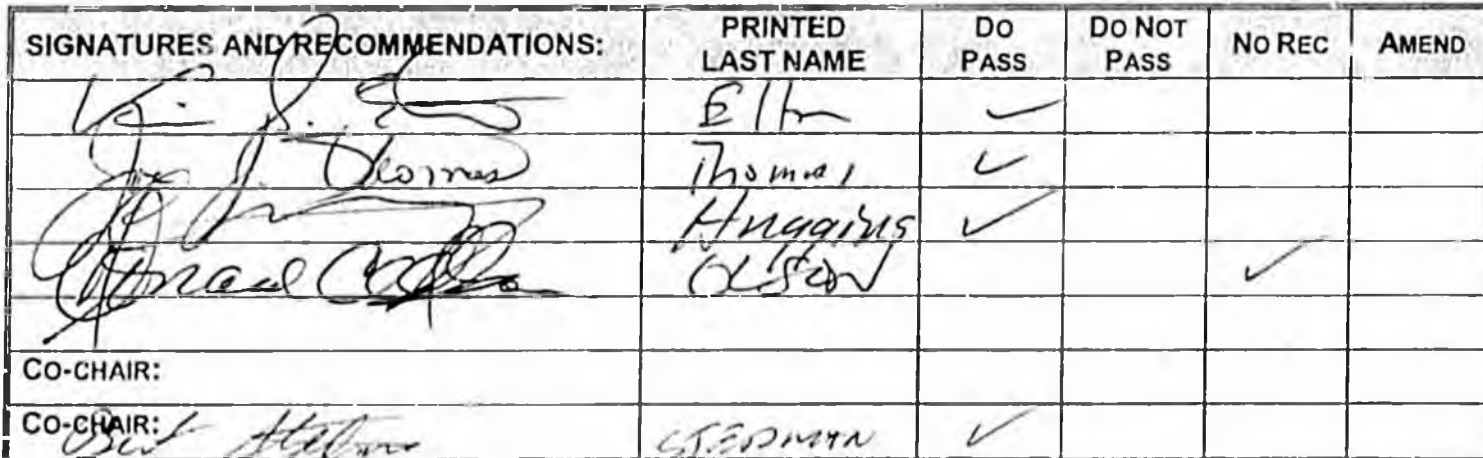 SIGNATURES AND RECOMMENDATIONS: PRINTED LAST NAME DO PASS DO NOT PASS NO REC AMEND
Elton ✓
Thomas Thomas ✓
Huggins ✓
Donald Olson OLSON ✓
CO-CHAIR:
CO-CHAIR: Bert Stedman STEDMAN ✓